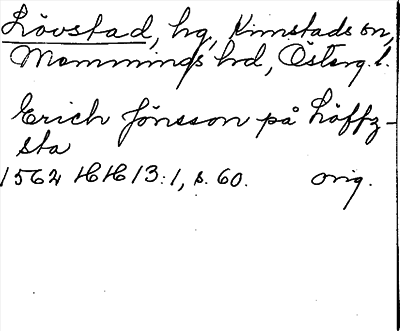 Lövstad, hg, Kimstads sn,
Memmings hd, Österg. l.
Erich Jönsson på Löffz-
sta
1562 HH 13:1, s. 60. orig.